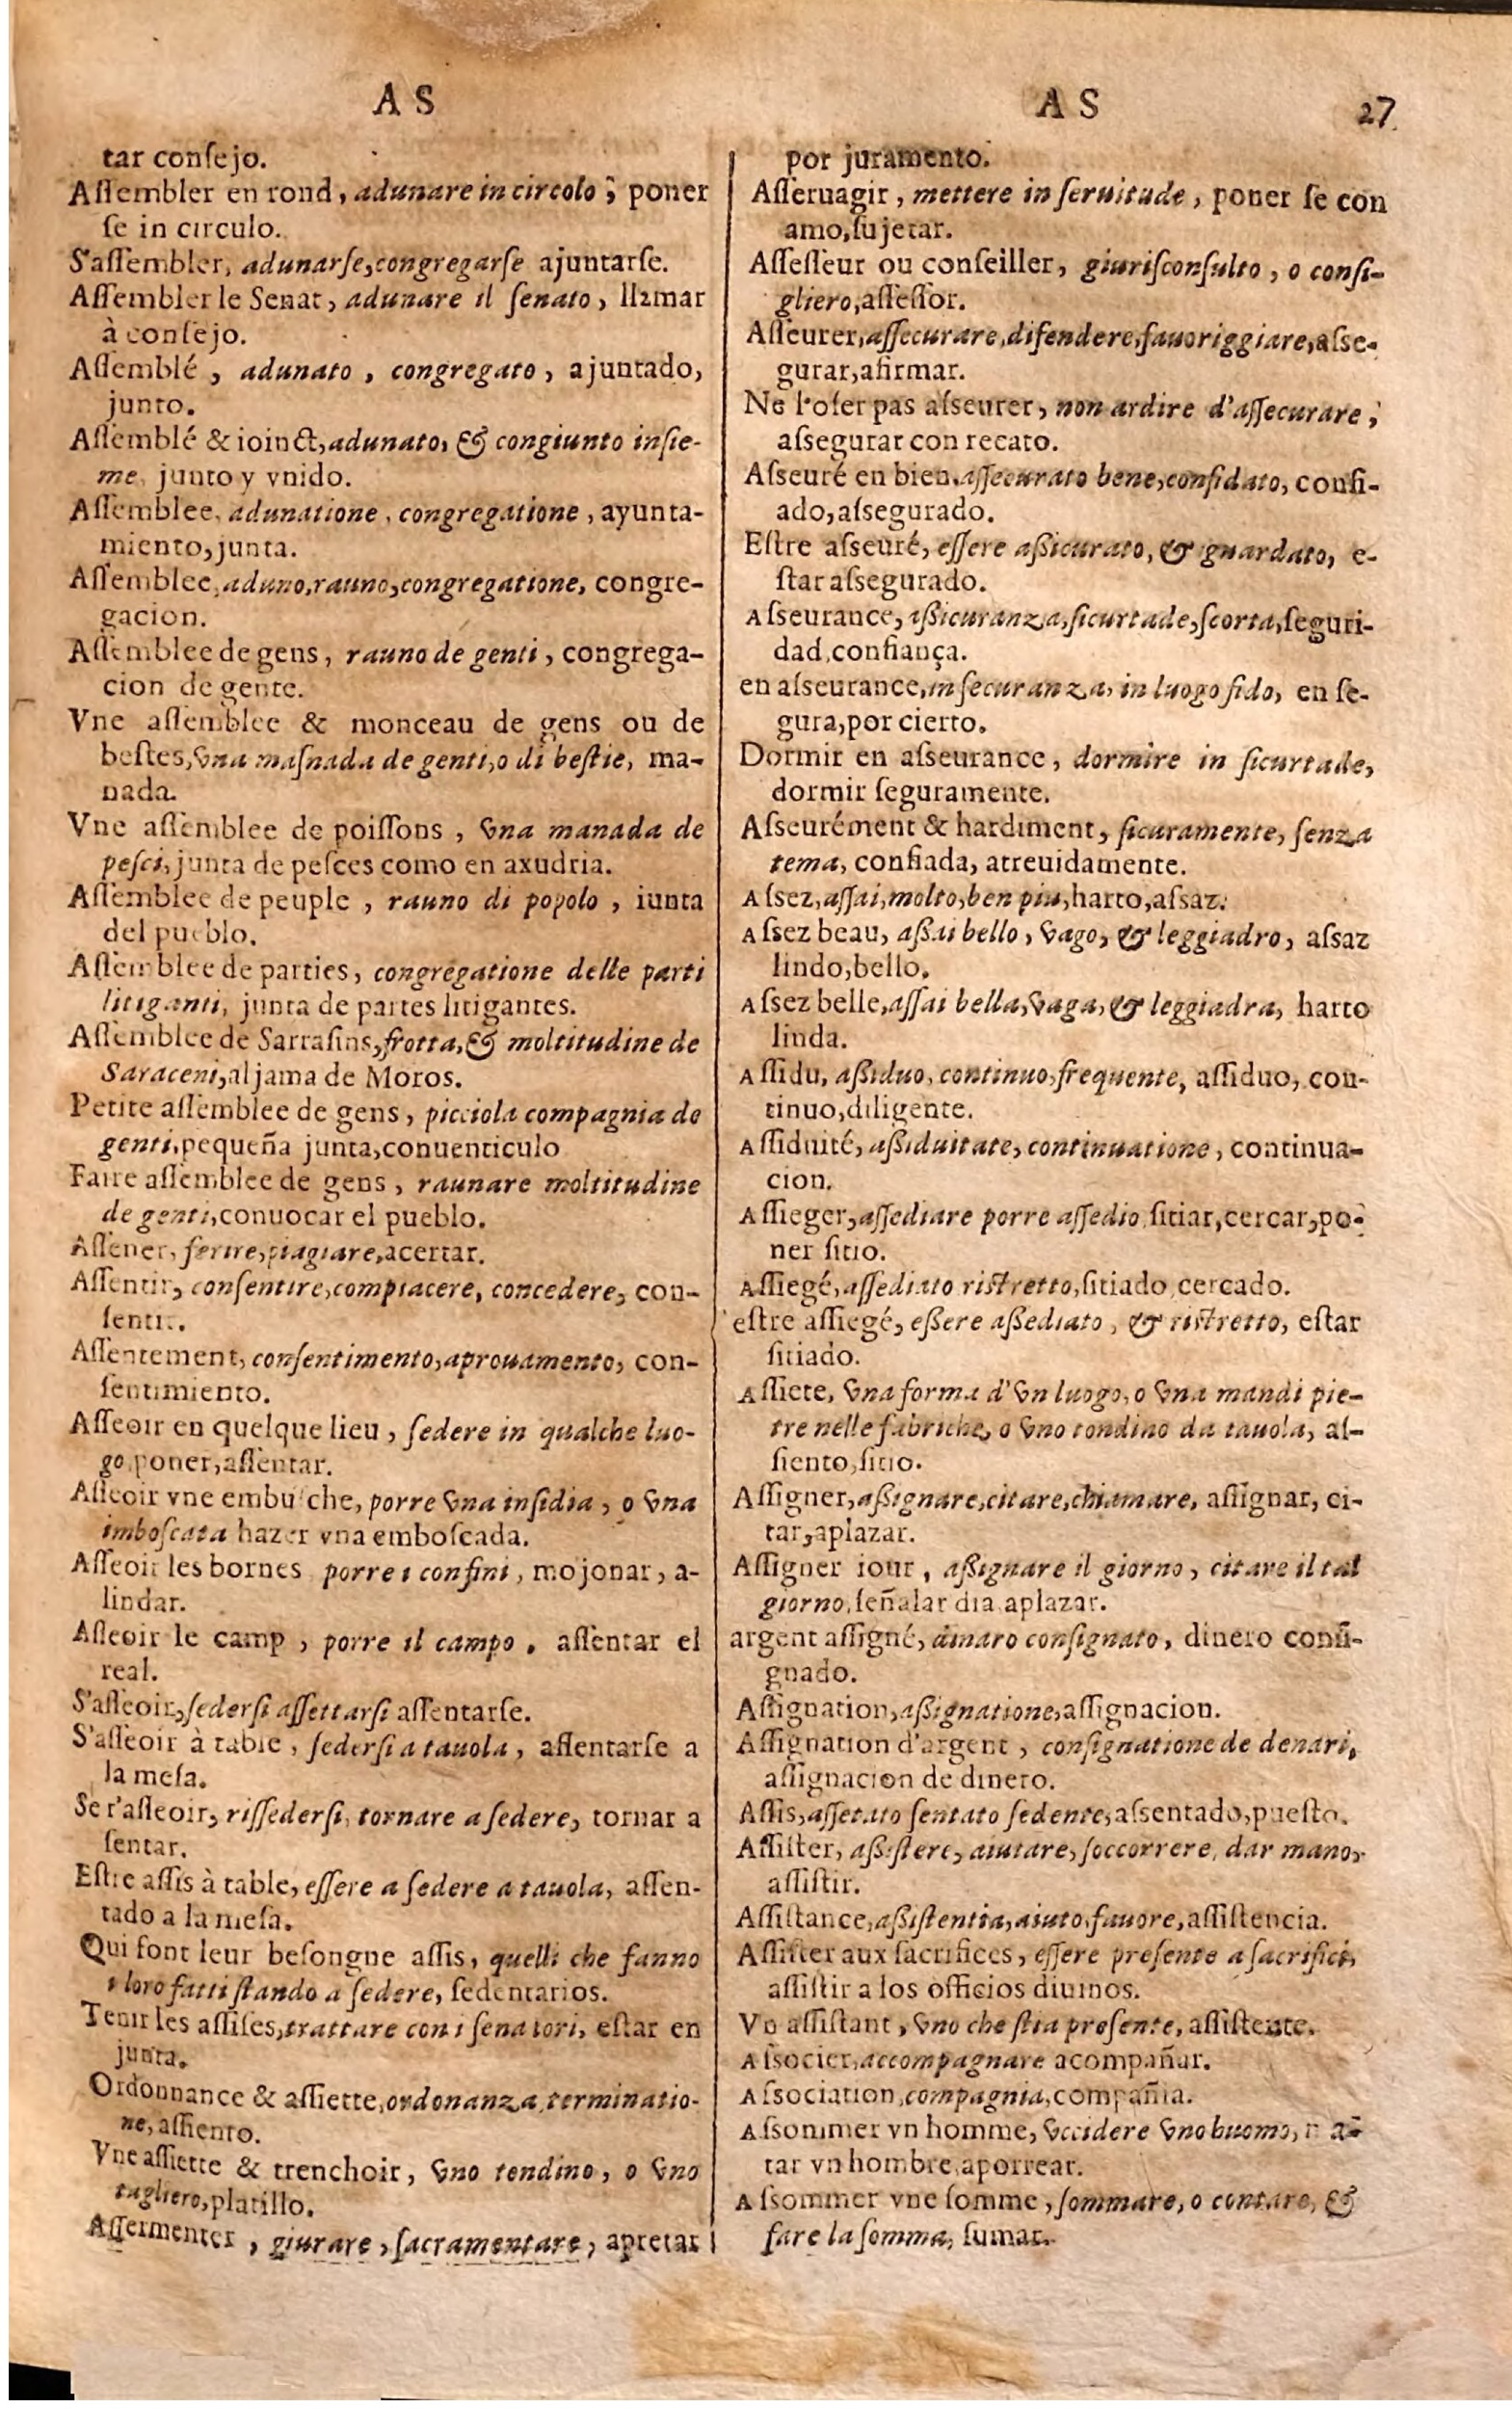 A S
tar conſejo.
Aſſembler en rond, adunare in circolo; poner
ſe in circulo.
S'aſſembler, adunarſe, congregarſe ajuntarſe.
Aſſembler le Senat, adunare il ſenato, llamar
à conſejo.
Aſſemblé, adunato, congregato, ajuntado,
junto.
Aſſemblé & ioinct, adunato, & congiunto inſie-
me, junto y vnido.
Aſſemblee, adunatione, congregatione, ayunta-
miento, junta.
Aſſemblee, aduno, rauno, congregatione, congre-
gacion.
Aſſemblee de gens, rauno de genti, congrega-
cion de gente.
Vne aſſemblee & monceau de gens ou de
beſtes, vna maſnada de genti, o di beſtie, ma-
nada.
Vne aſſemblee de poiſſons, vna manada de
peſci, junta de peſces como en axudria.
Aſſemblee de peuple, rauno di popolo, iunta
del pueblo.
Aſſemblee de parties, congregatione delle parti
litiganti, junta de partes litigantes.
Aſſemblee de Sarraſins, frotta, & moltitudine de
Saraceni, aljama de Moros.
Petite aſſemblee de gens, picciola compagnia de
genti, pequeña junta, conuenticulo
Faire aſſemblee de gens, raunare moltitudine
de genti, conuocar el pueblo.
Aſſener, ferire, piagiare, acertar.
Aſſentir, conſentire, compiacere, concedere, con-
ſentir.
Aſſentement, conſentimento, aprouamento, con-
ſentimiento.
Aſſeoir en quelque lieu, ſedere in qualche luo-
go, poner, aſſentar.
Aſſeoir vne embuſche, porre vna inſidia, o vna
imboſcata hazer vna emboſcada.
Aſſeoir les bornes porre i confini, mojonar, a-
lindar.
Aſſeoir le camp, porre il campo, aſſentar el
real.
S'aſſeoir, ſederſi aſſettarſi aſſentarſe.
S'aſſeoir à table, ſederſi a tauola, aſſentarſe a
la meſa.
Se r'aſſeoir, riſſederſi, tornare a ſedere, tornar a
ſentar.
Eſtre aſſis à table, eſſere a ſedere a tauola, aſſen-
tado a la meſa.
Qui font leur beſongne aſſis, quelli che fanno
i loro fatti ſtando a ſedere, ſedentarios.
Tenir les aſſiſes, trattare con i ſenatori, eſtar en
junta.
Ordonnance & aſſiette, ordonanza, terminatio-
ne, aſſiento.
Vne aſſiette & trenchoir, vno tondino, o vno
tagliero, platillo.
Aſſermenter, giurare, ſacramentare, apretar
A S 27
por juramento.
Aſſeruagir, mettere in ſeruitude, poner ſe con
amo, ſujetar.
Aſſeſſeur ou conſeiller, giuriſconſulto, o conſi-
gliero, aſſeſſor.
Aſſeurer, aſſecurare, difendere, fauoriggiare, aſse-
gurar, afirmar.
Ne l'oſer pas aſseurer, non ardire d'aſſecurare,
aſsegurar con recato.
Aſseuré en bien, aſſecurato bene, confidato, confi-
ado, aſsegurado.
Eſtre aſseuré, eſſere aßicurato, & guardato, e-
ſtar aſsegurado.
Aſseurance, aßicuranza, ſicurtade, ſcorta, ſeguri-
dad, confiança.
en aſseurance, in ſecuranza, in luogo fido, en ſe-
gura, por cierto.
Dormir en aſseurance, dormire in ſicurtade,
dormir ſeguramente.
Aſseurément & hardiment, ſicuramente, ſenza
tema, confiada, atreuidamente.
Aſsez, aſſai, molto, ben piu, harto, aſsaz.
Aſsez beau, aßai bello, vago, & leggiadro, aſsaz
lindo, bello.
Aſsez belle, aſſai bella, vaga, & leggiadra, harto
linda.
Aſſidu, aßiduo, continuo, frequente, aſſiduo, con-
tinuo, diligente.
Aſſiduité, aßiduitate, continuatione, continua-
cion.
Aſſieger, aſſediare porre aſſedio, ſitiar, cercar, po-
ner ſitio.
Aſſiegé, aſſediato riſtretto, ſitiado, cercado.
eſtre aſſiegé, eßere aßediato, & riſtretto, eſtar
ſitiado.
Aſſiete, vna forma d'vn luogo, o vna man di pie-
tre nelle fabriche, o vno tondino da tauola, aſ-
ſiento, ſitio.
Aſſigner, aßignare, citare, chiamare, aſſignar, ci-
tar, aplazar.
Aſſigner iour, aßignare il giorno, citare il tal
giorno, ſeñalar dia aplazar.
argent aſſigné, dinaro conſignato, dinero conſi-
gnado.
Aſſignation, aßignatione, aſſignacion.
Aſſignation d'argent, conſignatione de denari,
aſſignacion de dinero.
Aſſis, aſſetato ſentato ſedente, aſsentado, pueſto.
Aſſiſter, aßiſtere, aiutare, ſoccorrere, dar mano,
aſſiſtir.
Aſſiſtance, aßiſtentia, aiuto, fauore, aſſiſtencia.
Aſſiſter aux ſacrifices, eſſere preſente a ſacrifici,
aſſiſtir a los officios diuinos.
Vn aſſiſtant, vno che ſtia preſente, aſſiſtente.
Aſsocier, accompagnare acompañar.
Aſsociation, compagnia, compañia.
Aſsommer vn homme, vccidere vno huomo, ma-
tar vn hombre, aporrear.
Aſsommer vne ſomme, ſommare, o contare, &
fare la ſomma, ſumar.